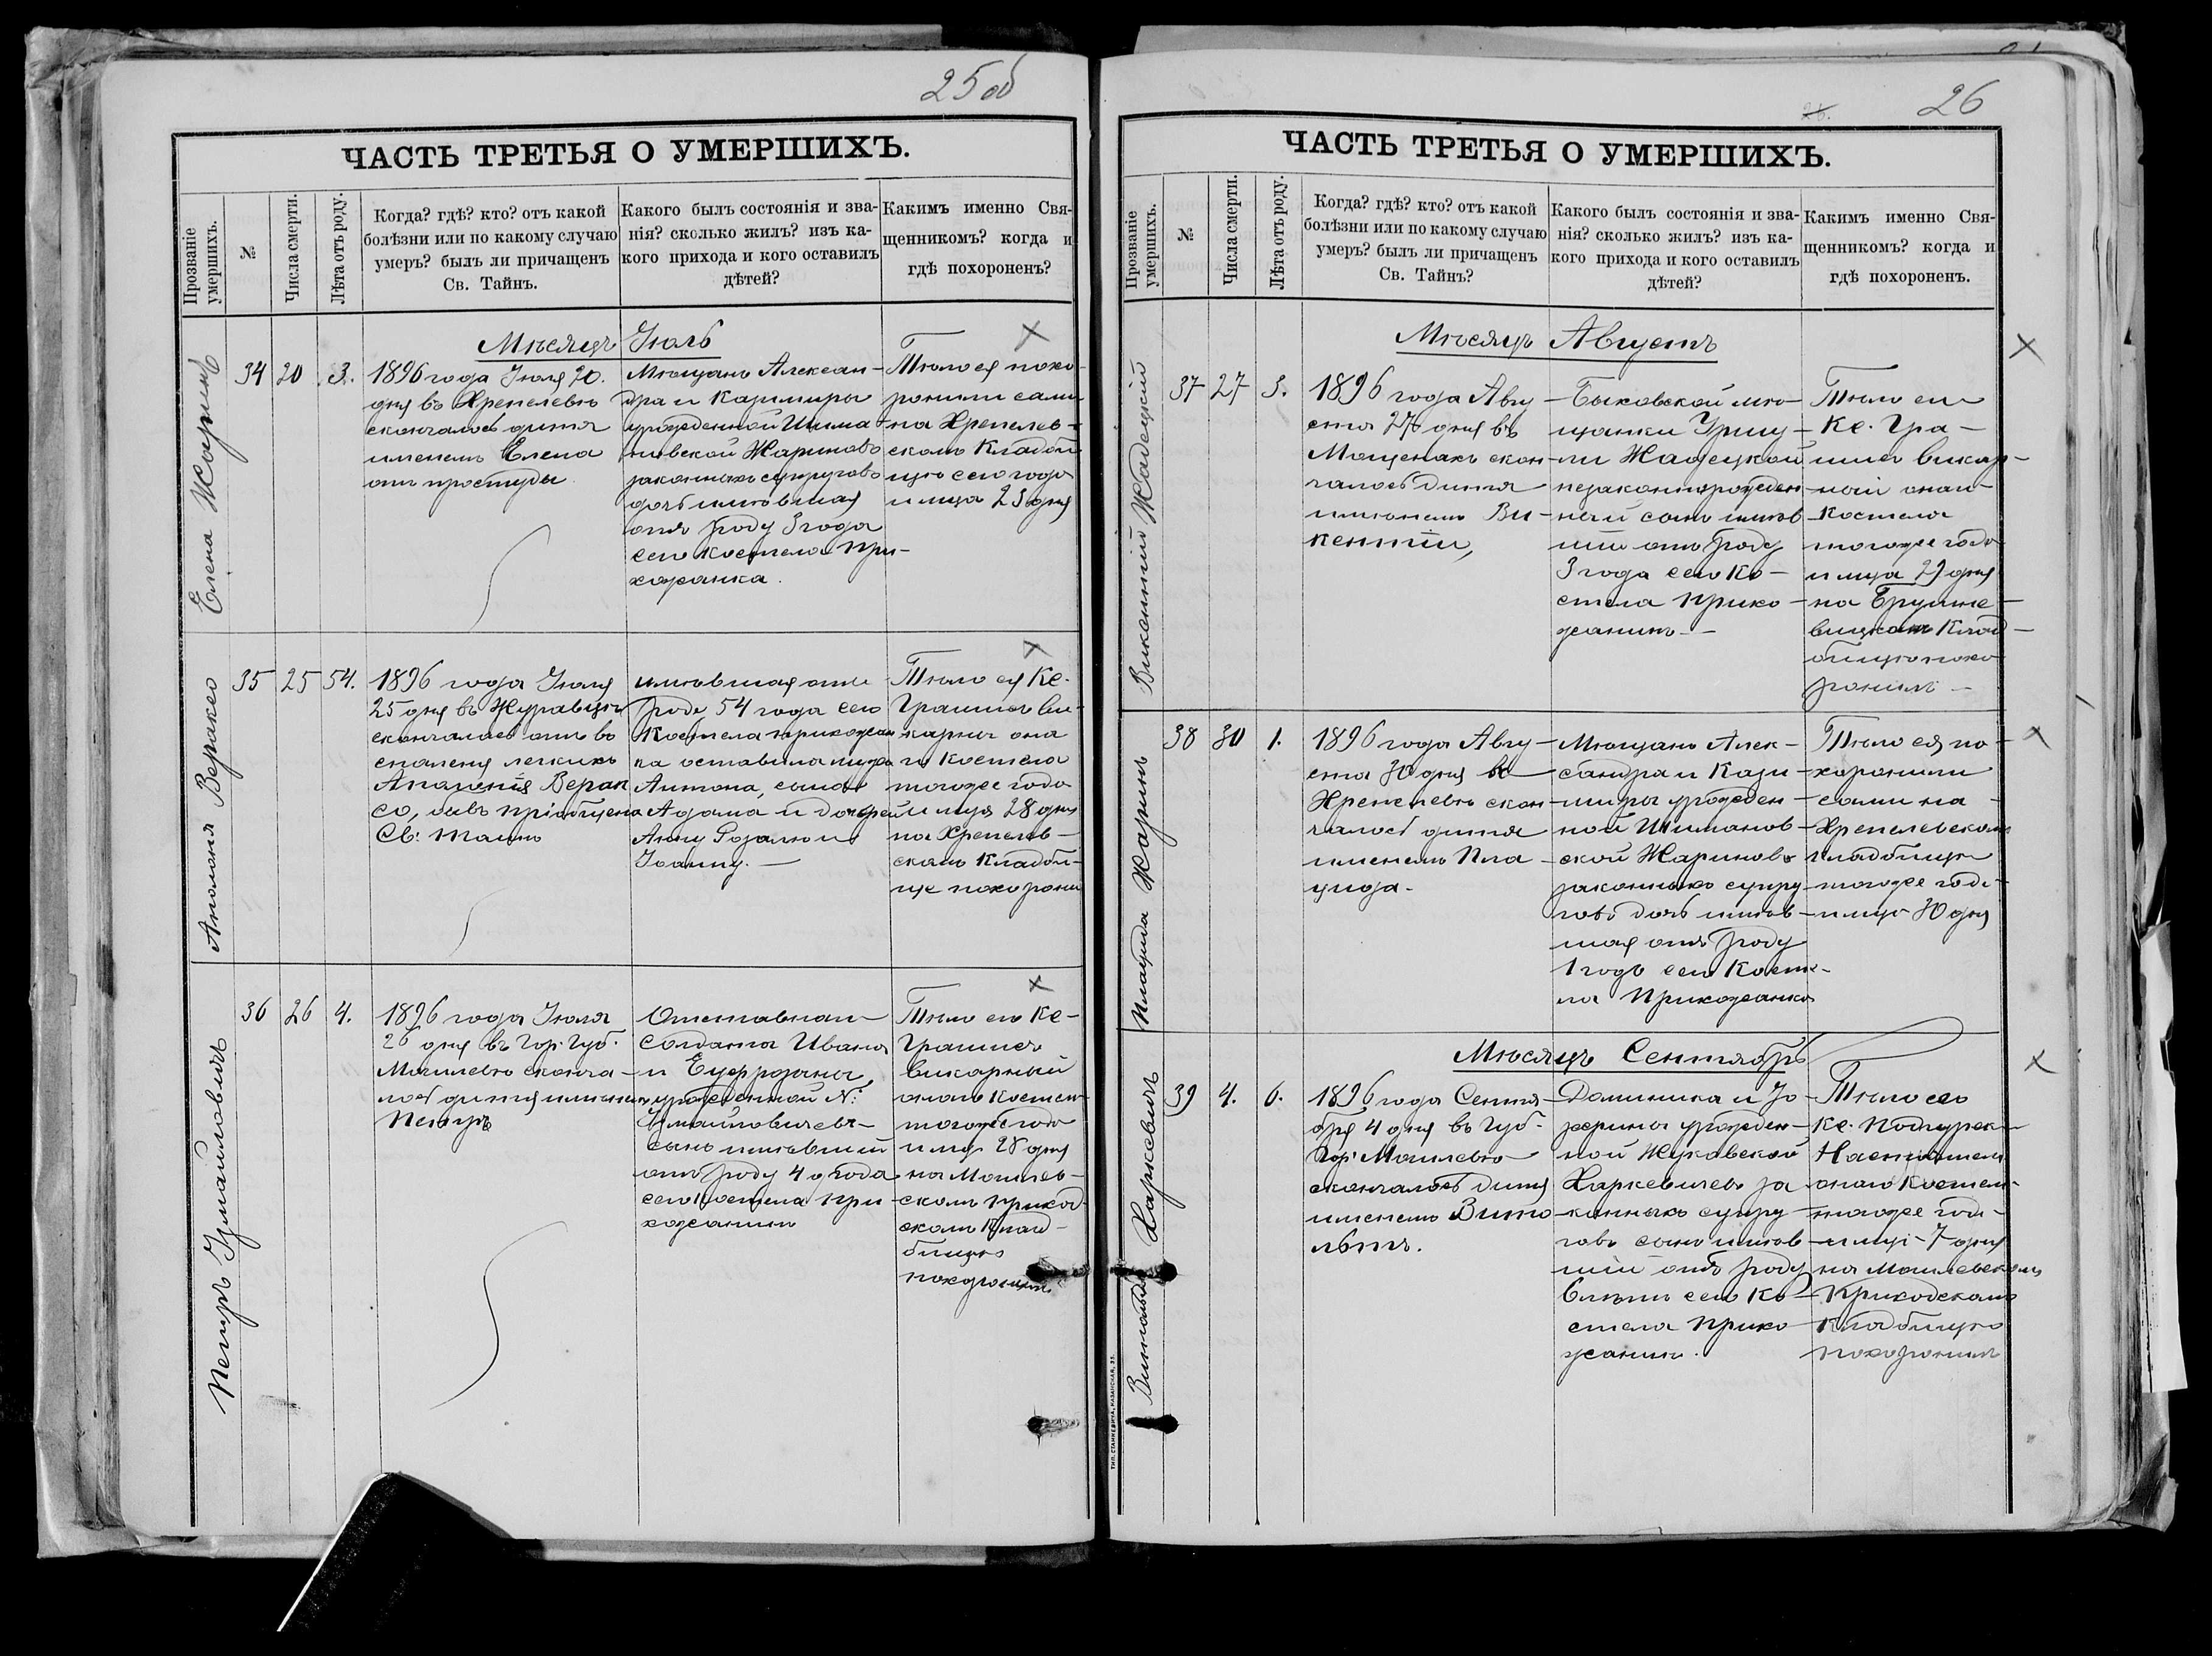 25 об
ЧАСТЬ ТРЕТЬЯ О УМЕРШИХЪ.
Прозваніе умершихъ.
№
Числа смерти.
Лѣта отъ роду.
Когда? гдѣ? кто? отъ какой
болѣзни или по какому случаю
умеръ? былъ ли причащенъ
Св. Тайнъ.
Какого былъ состоянія и зва-
нія? сколько жилъ? изъ ка-
кого прихода и кого оставилъ
дѣтей?
Какимъ именно Свя-
щенникомъ? когда и
гдѣ похороненъ?
Мѣсяцъ Іюль
Елена Жаринъ
34 20 3.
1896 года Іюля 20.
дня въ Хрепелевѣ
скончалось дитя
именемъ Елена
отъ простуды
Мѣщанъ Алексан-
дра и Казимиры
урожденной Шима-
новской Жариновъ
законныхъ супруговъ
дочь имѣвшая
отъ роду 3 года
сего костела при-
хожанка.
Тѣло ея похо-
ронили сами
на Хрепелев-
скомъ кладби-
щѣ сего года
и мца 23 дня
Аполонія Вераксо
35 25 54.
1896 года Іюля
25 дня въ Журавцѣ
скончалась отъ во
спаленія легкихъ
Аполонія Верак
со, бывъ пріобщена
Св: Таинъ
имѣвшая отъ
роду 54 года сего
Костела прихожан
ка оставила мужа
Антона, сына
Адама и дочерей
Анну Розалію и
Іоанну.
Тѣло ея Кс.
Грашисъ ви-
карный она
го Костела
тогоже года
и мца 28 дня
на Хрепелев-
скомъ кладби-
ще похорони
Петръ Измайловичъ
36 26 4.
1896 года Іюля
26 дня въ Гор. Губ.
Могилевѣ сконча-
лось дитя именемъ
Петръ
Отставнаго
солдата Ивана
и Еуфрозины
урожденной N:
Измайловичевъ
сынъ имѣвшій
отъ роду 4 года
сего костела при
хожанинъ
Тѣло его Кс-
Грашисъ
викарный
онаго костел-
тогоже года
и мца 28 дня
на Могилев-
скомъ приход-
скомъ клад-
бищѣ
похоронилъ
26.
26
ЧАСТЬ ТРЕТЬЯ О УМЕРШИХЪ.
Прозваніе умершихъ.
№
Числа смерти.
Лѣта отъ роду.
Когда? гдѣ? кто? отъ какой
болѣзни или по какому случаю
умеръ? былъ ли причащенъ
Св. Тайнъ?
Какого былъ состоянія и зва-
нія? сколько жилъ? изъ ка-
кого прихода и кого оставилъ
дѣтей?
Какимъ именно Свя-
щенникомъ? когда и
гдѣ похороненъ.
Мѣсяцъ Августъ
Викентій Жадецкій
37 27 3.
1896 года Авгу
ста 27 дня въ
скон
чалось дитя
именемъ Ви-
кентій,
Быковской мѣ-
щанки Уршу-
ли Жадецкой
незаконнорожден
ный сынъ имѣв
шій отъ роду
3 года сего Ко-
стела прихо-
жанинъ
Тѣло его
Кс. Гра-
шисъ викар-
ный онаго
Костела
тогоже года
и мца 29 дня
на
кладбищѣ похо
ронилъ
Плацида Жаринъ
38 30 1.
1896 года Авгу
ста 30 дня въ
Хрепелевѣ скон
чалось дитя
именемъ Пла
цида.
Мѣщанъ Алек-
сандра и Кази
миры урожден
ной Шиманов
ской Жариновъ
законныхъ супру
говъ дочь имѣв
шая отъ роду
1 годъ сего Косте-
ла прихожанка
Тѣло ея по-
хоронили
сами на
Хрепелевскомъ
кладбищѣ
тогоже года
и мца 30 дня
Мѣсяцъ Сентябрь
Витольдъ Харкевичъ
39 4. 6.
1896 года Сентя-
бря 4 дня въ Губ-
Гор: Могилевѣ
скончалось дитя
именемъ Вито
льдъ.
Доминика и Іо
зефины урожден-
ной Жуковской
Харкевичевъ за
конныхъ супру
говъ сынъ имѣв
шій отъ роду
6 лѣтъ сего Ко
стела прихо
жанинъ.
Тѣло его
Кс.
Настоятель
онаго Костела
тогоже года
и мца 7 дня
на Могилевскомъ
Приходскомъ
Кладбищѣ
похоронилъ
ТИП. СТАНКЕВИЧА, КАЗАНСКАЯ, 33.